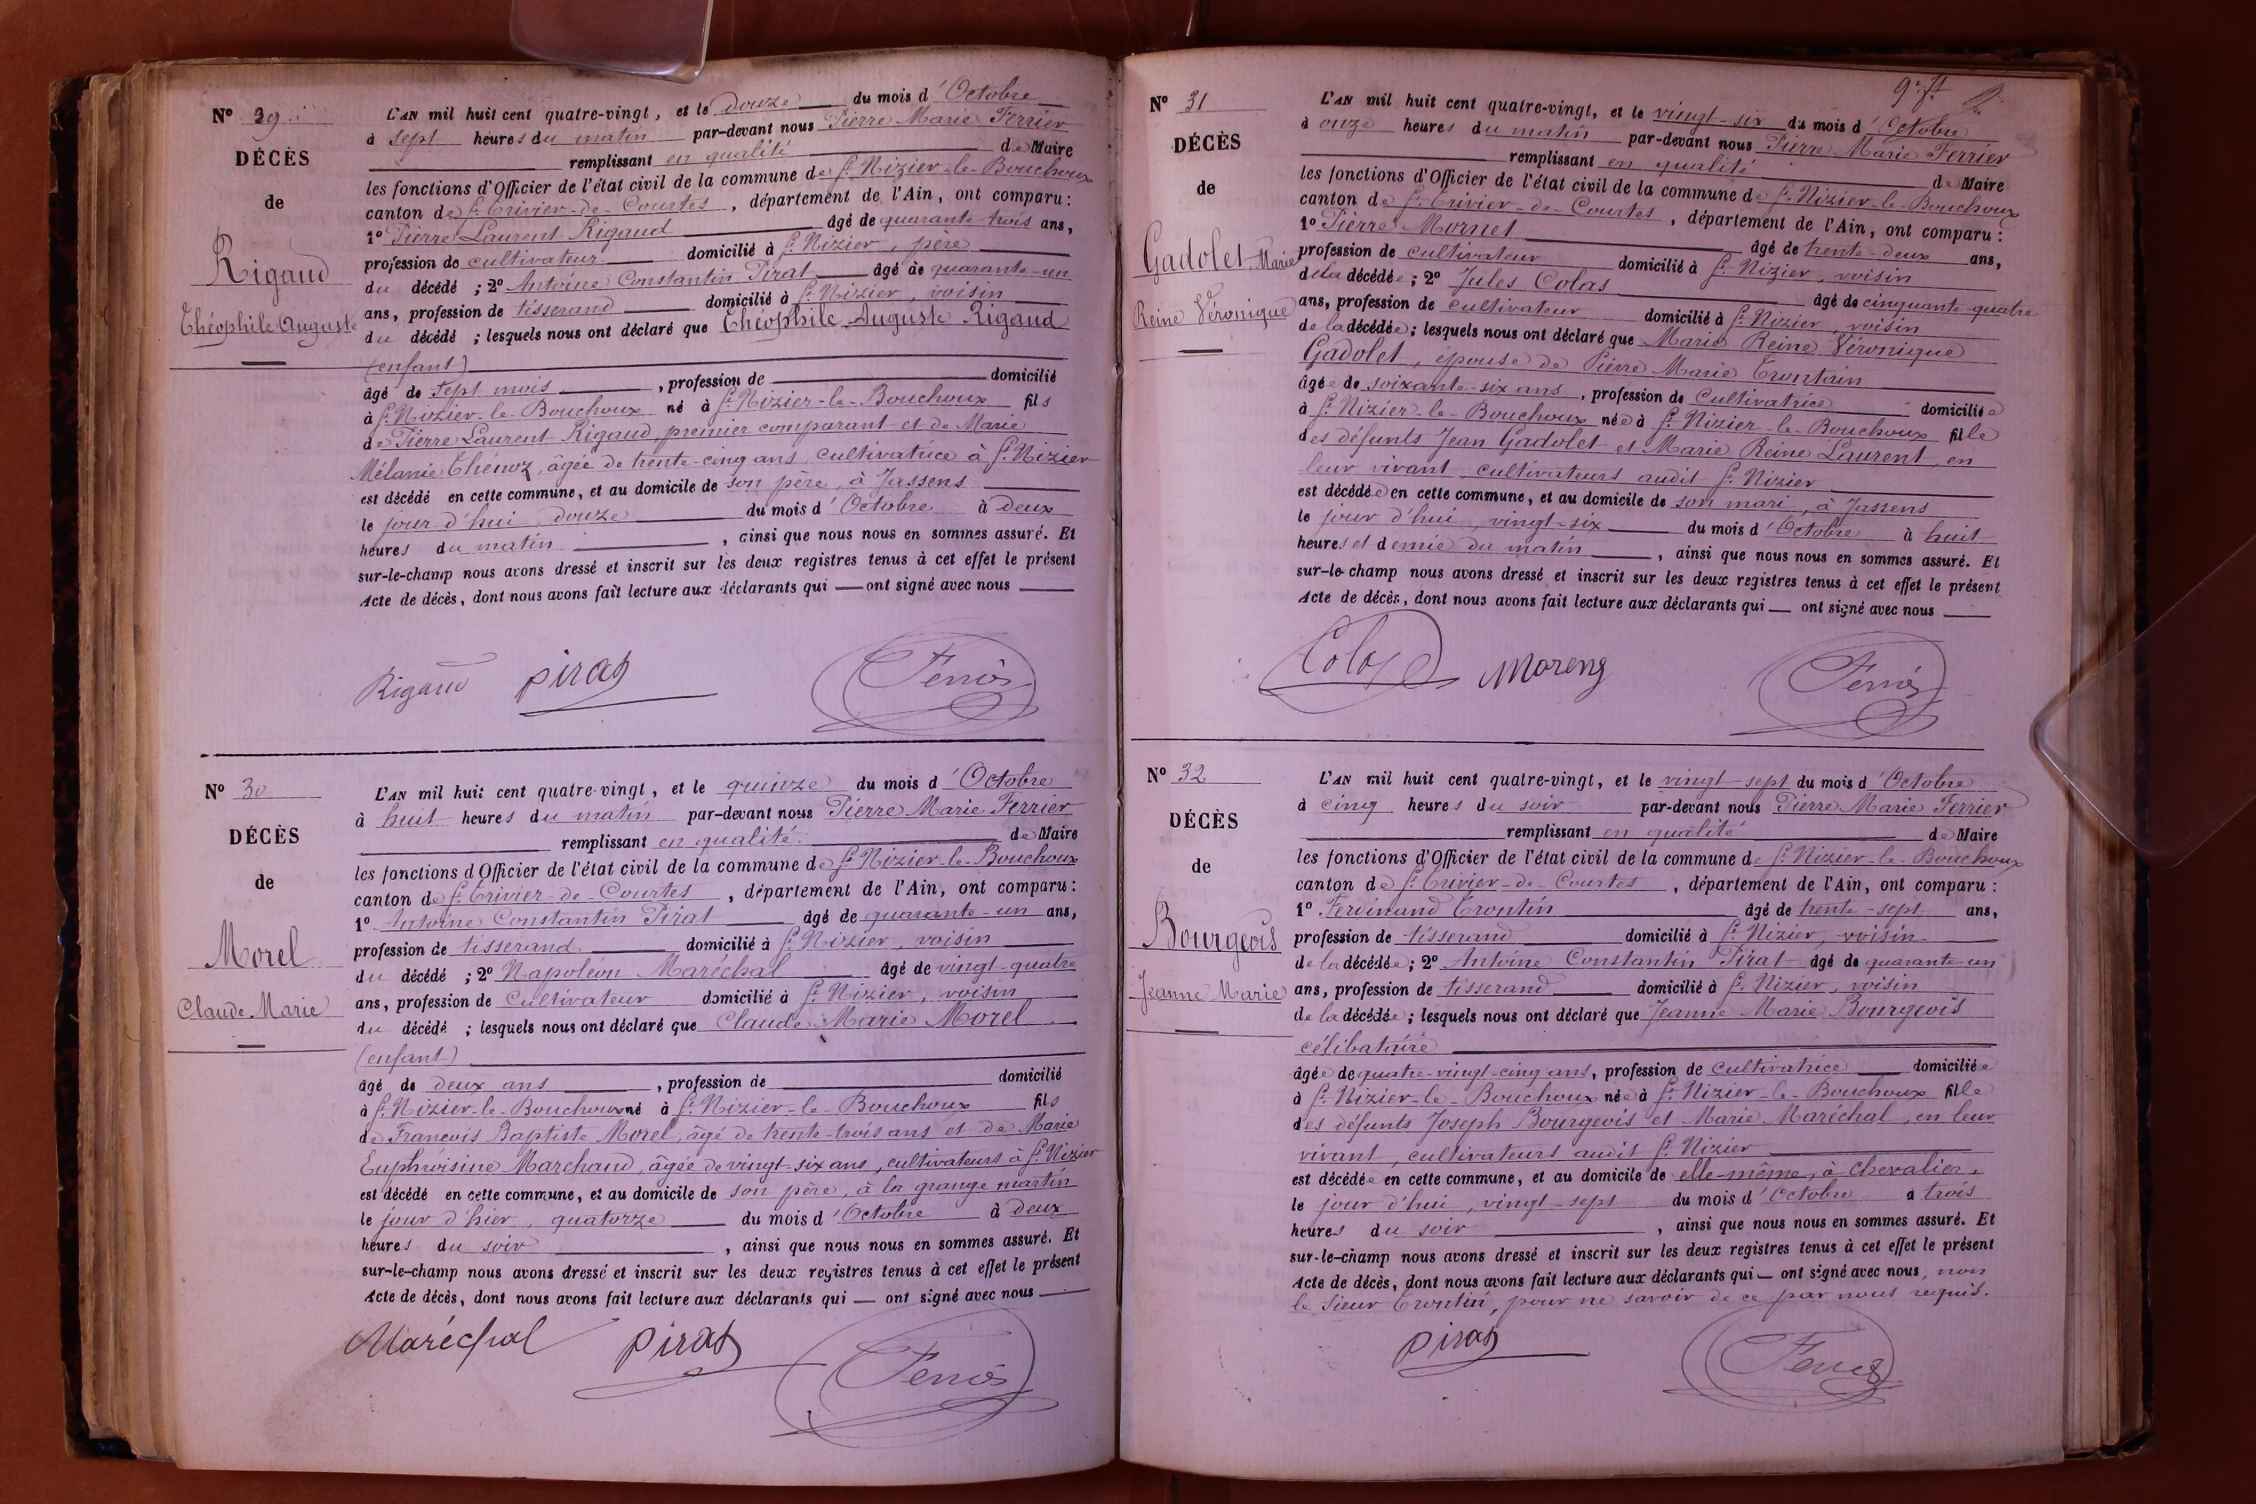 N° 29
DÉCÈS
de
Rigaud
Théophile Auguste
L'AN mil huit cent quatre-vingt, et le douze du mois d'Octobre
à sept heures du matin par-devant nous Pierre Marie Ferrier
remplissant en qualité de Maire
les fonctions d'Officier de l'état civil de la commune de St Nizier-le-Bouchoux
canton de St Trivier-de-Courtes, département de l'Ain, ont comparu :
1° Pierre Laurent Rigaud âgé de quarante-trois ans,
profession de cultivateur domicilié à St Nizier, père
du décédé ; 2° Antoine Constantin Pirat âgé de quarante-un
ans, profession de tisserand domicilié à St Nizier, voisin
du décédé ; lesquels nous ont déclaré que Théophile Auguste Rigaud
(enfant)
âgé de sept mois, profession de domicilié
à St Nizier-le-Bouchoux né à St Nizier-le-Bouchoux fils
de Pierre Laurent Rigaud, premier comparant et de Marie
Mélanie Thénoz, âgée de trente-cinq ans, cultivatrice à St Nizier
est décédé en cette commune, et au domicile de son père, à Jassens
le jour d'hui douze du mois d'Octobre à deux
heures du matin, ainsi que nous nous en sommes assuré. Et
sur-le-champ nous avons dressé et inscrit sur les deux registres tenus à cet effet le présent
Acte de décès, dont nous avons fait lecture aux déclarants qui — ont signé avec nous —
Rigaud Pirat Ferrier
N° 30
DÉCÈS
de
Morel
Claude Marie
L'AN mil huit cent quatre-vingt, et le quinze du mois d'Octobre
à huit heures du matin par-devant nous Pierre Marie Ferrier
remplissant en qualité de Maire
les fonctions d'Officier de l'état civil de la commune de St Nizier-le-Bouchoux
canton de St Trivier-de-Courtes, département de l'Ain, ont comparu :
1° Antoine Constantin Pirat âgé de quarante-un ans,
profession de tisserand domicilié à St Nizier, voisin
du décédé ; 2° Napoléon Maréchal âgé de vingt-quatre
ans, profession de Cultivateur domicilié à St Nizier, voisin
du décédé ; lesquels nous ont déclaré que Claude Marie Morel
(enfant)
âgé de deux ans, profession de domicilié
à St Nizier-le-Bouchoux né à St Nizier-le-Bouchoux fils
de François Baptiste Morel, âgé de trente-trois ans et de Marie
Euphroisine Marchand, âgée de vingt-six ans, cultivateurs à St Nizier
est décédé en cette commune, et au domicile de son père, à la grange martin
le jour d'hier, quatorze du mois d'Octobre à deux
heures du soir, ainsi que nous nous en sommes assuré. Et
sur-le-champ nous avons dressé et inscrit sur les deux registres tenus à cet effet le présent
Acte de décès, dont nous avons fait lecture aux déclarants qui — ont signé avec nous —
Maréchal Pirat Ferrier
N° 31
DÉCÈS
de
Gadolet Marie
Reine Véronique
L'AN mil huit cent quatre-vingt, et le vingt-six du mois d'Octobre
à onze heures du matin par-devant nous Pierre Marie Ferrier
remplissant en qualité de Maire
les fonctions d'Officier de l'état civil de la commune de St Nizier-le-Bouchoux
canton de St Trivier-de-Courtes, département de l'Ain, ont comparu :
1° Pierre Mornet âgé de trente-deux ans,
profession de cultivateur domicilié à St Nizier, voisin
de la décédée ; 2° Jules Colas âgé de cinquante-quatre
ans, profession de cultivateur domicilié à St Nizier, voisin
de la décédée ; lesquels nous ont déclaré que Marie Reine Véronique
Gadolet, épouse de Pierre Marie Trontin
âgée de soixante-six ans, profession de Cultivatrice domiciliée
à St Nizier-le-Bouchoux née à St Nizier-le-Bouchoux fille
des défunts Jean Gadolet et Marie Reine Laurent, en
leur vivant cultivateurs audit St Nizier
est décédée en cette commune, et au domicile de son mari, à Jassens
le jour d'hui, vingt-six du mois d'Octobre à huit
heures et demie du matin, ainsi que nous nous en sommes assuré. Et
sur-le-champ nous avons dressé et inscrit sur les deux registres tenus à cet effet le présent
Acte de décès, dont nous avons fait lecture aux déclarants qui — ont signé avec nous —
Colas Moreng Ferrier
N° 32
DÉCÈS
de
Bourgeois
Jeanne Marie
L'AN mil huit cent quatre-vingt, et le vingt-sept du mois d'Octobre
à cinq heures du soir par-devant nous Pierre Marie Ferrier
remplissant en qualité de Maire
les fonctions d'Officier de l'état civil de la commune de St Nizier-le-Bouchoux
canton de St Trivier-de-Courtes, département de l'Ain, ont comparu :
1° Ferdinand Trontin âgé de trente-sept ans,
profession de tisserand domicilié à St Nizier, voisin
de la décédée ; 2° Antoine Constantin Pirat âgé de quarante-un
ans, profession de tisserand domicilié à St Nizier, voisin
de la décédée ; lesquels nous ont déclaré que Jeanne Marie Bourgeois
célibataire
âgée de quatre-vingt-cinq ans, profession de Cultivatrice domiciliée
à St Nizier-le-Bouchoux née à St Nizier-le-Bouchoux fille
des défunts Joseph Bourgeois et Marie Maréchal, en leur
vivant, cultivateurs audit St Nizier
est décédée en cette commune, et au domicile de elle-même, à Chevalier,
le jour d'hui, vingt-sept du mois d'Octobre à trois
heures du soir, ainsi que nous nous en sommes assuré. Et
sur-le-champ nous avons dressé et inscrit sur les deux registres tenus à cet effet le présent
Acte de décès, dont nous avons fait lecture aux déclarants qui — ont signé avec nous, non
le sieur Trontin, pour ne savoir de ce par nous requis.
Pirat Ferrier